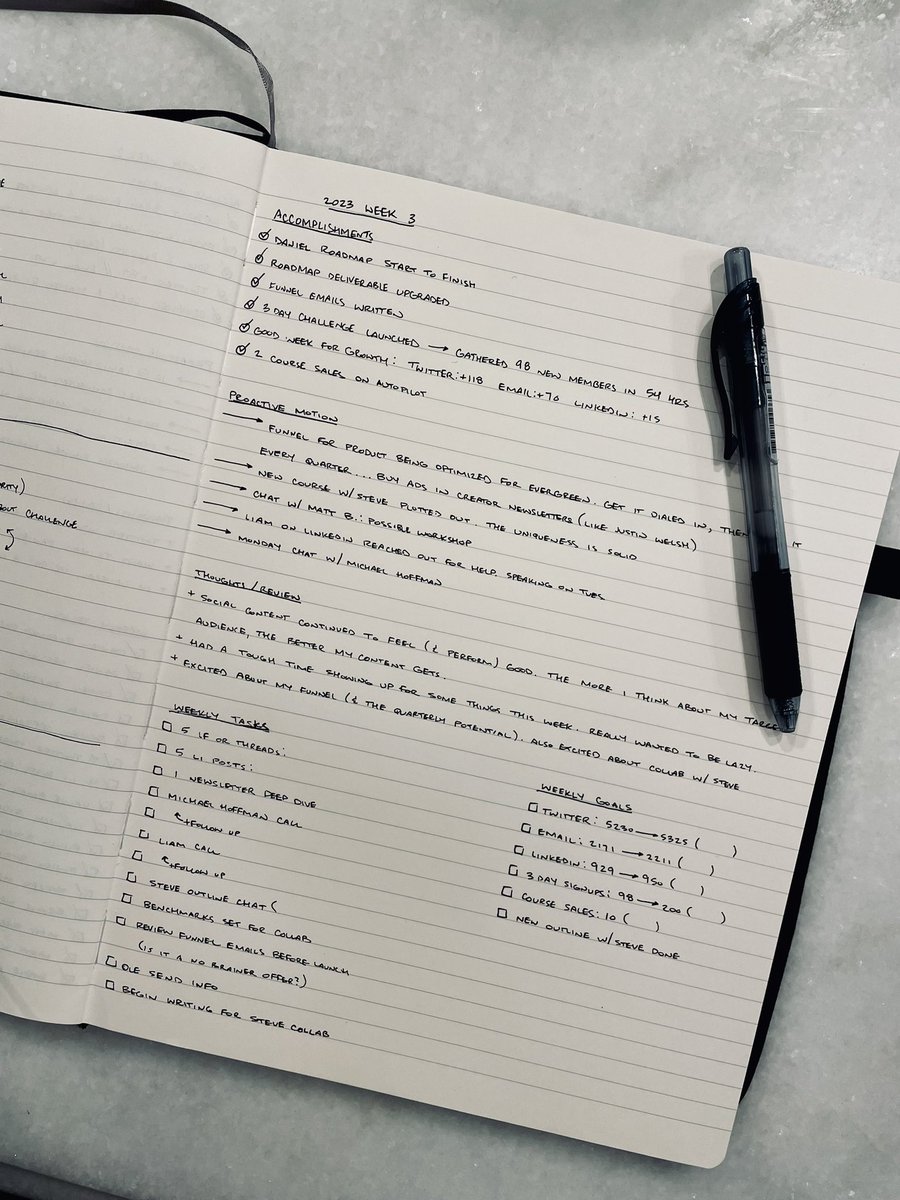 RITY)
OUT CHALLENGE
2023 WEEK 3
ACCOMPLISHMENTS
DANIEL ROADMAP START TO FINISH
ROADMAP DELIVERABLE UPGRADED
FUNNEL EMAILS WRITTEN
3 DAY CHALLENGE LAUNCHED → GATHERED 98 NEW MEMBERS IN 54 HRS
GOOD WEEK FOR GROWTH: TWITTER:+118 EMAIL:+70 LINKEDIN: +15
2 COURSE SALES ON AUTOPILOT
PROACTIVE MOTION
→ FUNNEL FOR PRODUCT BEING OPTIMIZED FOR EVERGREEN. GET IT DIALED IN, THEN IT
EVERY QUARTER... BUY ADS IN CREATOR NEWSLETTERS (LIKE JUSTIN WELSH)
→ NEW COURSE W/ STEVE PLOTTED OUT. THE UNIQUENESS IS SOLID
→ CHAT W/ MATT B.: POSSIBLE WORKSHOP
→ LIAM ON LINKEDIN REACHED OUT FOR HELP. SPEAKING ON TUES
→ MONDAY CHAT W/ MICHAEL HOFFMAN
THOUGHTS/REVIEW
+ SOCIAL CONTENT CONTINUED TO FEEL (& PERFORM) GOOD. THE MORE I THINK ABOUT MY TARGE
AUDIENCE, THE BETTER MY CONTENT GETS.
+ HAD A TOUGH TIME SHOWING UP FOR SOME THINGS THIS WEEK. REALLY WANTED TO BE LAZY.
+ EXCITED ABOUT MY FUNNEL (& THE QUARTERLY POTENTIAL). ALSO EXCITED ABOUT COLLAB W/ STEVE
WEEKLY TASKS
5 LF OR THREADS:
5 LI POSTS:
1 NEWSLETTER DEEP DIVE
MICHAEL HOFFMAN CALL
FOLLOW UP
LIAM CALL
FOLLOW UP
STEVE OUTLINE CHAT (
BENCHMARKS SET FOR COLLAB
REVIEW FUNNEL EMAILS BEFORE LAUNCH
(IS IT A NO BRAINER OFFER?)
OLE SEND INFO
BEGIN WRITING FOR STEVE COLLAB
WEEKLY GOALS
TWITTER: 5230 → 5325 ( )
EMAIL: 2171 → 2211 ( )
LINKEDIN: 929 → 950 ( )
3 DAY SIGNUPS: 98 → 200 ( )
COURSE SALES: 10 ( )
NEW OUTLINE W/ STEVE DONE